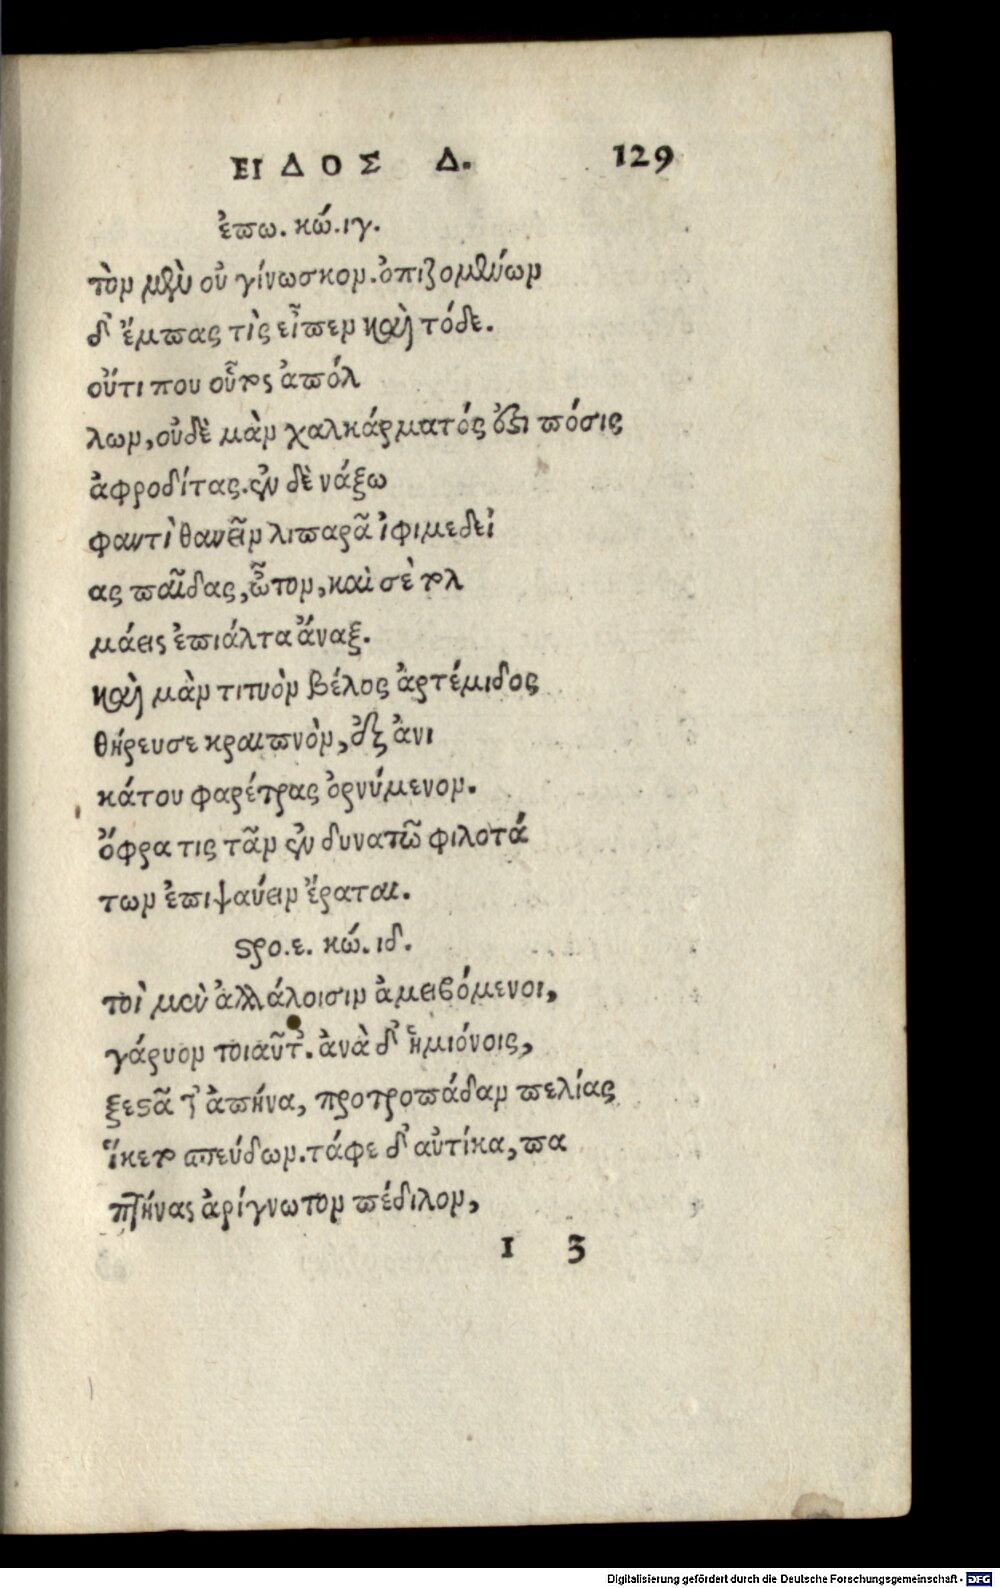 ΕΙ Δ Ο Σ Δ. 129
ἐπω. κώ. ιγ.
τὸν μὲν οὐ γίνωσκον. ὀπιζομένων
δ' ἔμπας τὶς εἶπεν καὶ τόδε.
οὔτι που οὗτος ἀπόλ
λων, οὐδὲ μὰν χαλκάρματός ἐστι πόσις
ἀφροδίτας. ἐν δὲ νάξω
φαντὶ θανεῖν λιπαρᾶ ἰφιμεδεί
ας παῖδας, ὦτον, καὶ σὲ τολ
μάεις ἐπιάλτα ἄναξ.
καὶ μὰν τιτυὸν βέλος ἀρτέμιδος
θήρευσε κραιπνὸν, ἐξ ἀνι
κάτου φαρέτρας ὀρνύμενον.
ὄφρα τις τᾶν ἐν δυνατῶ φιλοτά
των ἐπιψαύειν ἔραται.
στρο. ε. κώ. ιδ.
τοὶ μὲν ἀλλάλοισιν ἀμειβόμενοι,
γάρυον τοιαῦτ'. ἀνὰ δ' ἡμιόνοις,
ξεστᾶ τ' ἀπήνα, προτροπάδαν πελίας
ἵκετο σπεύδων. τάφε δ' αὐτίκα, πα
πτήνας ἀρίγνωτον πέδιλον,
I 3
Digitalisierung gefördert durch die Deutsche Forschungsgemeinschaft - DFG